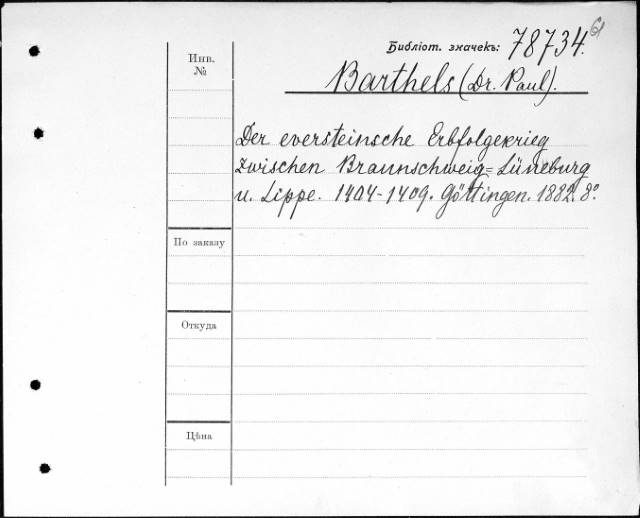 Библіот. значекъ: 78734.
Инв.
№
Barthels (Dr. Paul).
Der eversteinsche Erbfolgekrieg
zwischen Braunschweig=Lüneburg
u. Lippe. 1404-1409. Göttingen. 1882. 8°.
По заказу
Откуда
Цѣна